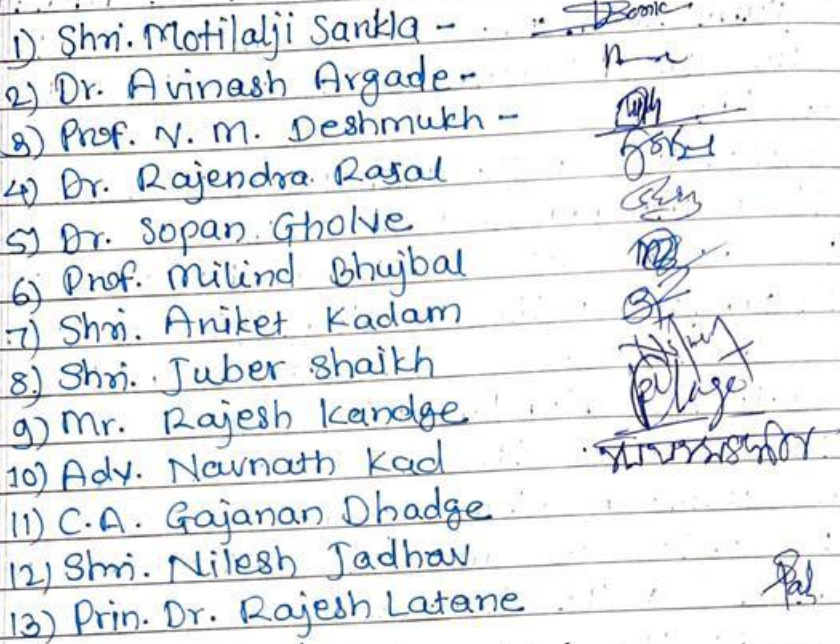 1) Shri. Motilalji Sankla -
2) Dr. Avinash Argade -
3) Prof. N. M. Deshmukh -
4) Dr. Rajendra Rasal
5) Dr. Sopan Gholve
6) Prof. Milind Bhujbal
7) Shri. Aniket Kadam
8) Shri. Juber Shaikh
9) Mr. Rajesh Kandge
10) Adv. Navnath Kad
11) C.A. Gajanan Dhadge
12) Shri. Nilesh Jadhav
13) Prin. Dr. Rajesh Latane